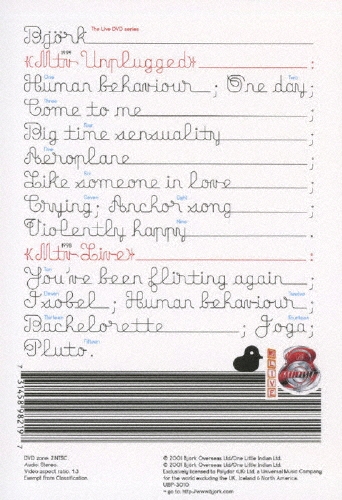 Björk The Live DVD series
1994
«Mtv Unplugged» :
One Two
Human behaviour ; One day ;
Three
Come to me ;
Four
Big time sensuality ;
Five
Aeroplane ;
Six
Like someone in love ;
Seven Eight
Crying ; Anchor song ;
Nine
Violently happy .
1998
«Mtv Live» :
Ten
You've been flirting again ;
Eleven Twelve
Isobel ; Human behaviour ;
Thirteen Fourteen
Bachelorette ; Joga ;
Fifteen
Pluto .
LIVE
DVD zone: 2/NTSC
Audio: Stereo
Video aspect ratio: 4:3
Exempt from Classification.
℗ 2001 Björk Overseas Ltd/One Little Indian Ltd.
© 2001 Björk Overseas Ltd/One Little Indian Ltd.
Exclusively licensed to Polydor (UK) Ltd, a Universal Music Company
for the world excluding the UK, Iceland & North America.
UIBP-3010
+ go to: http://www.bjork.com